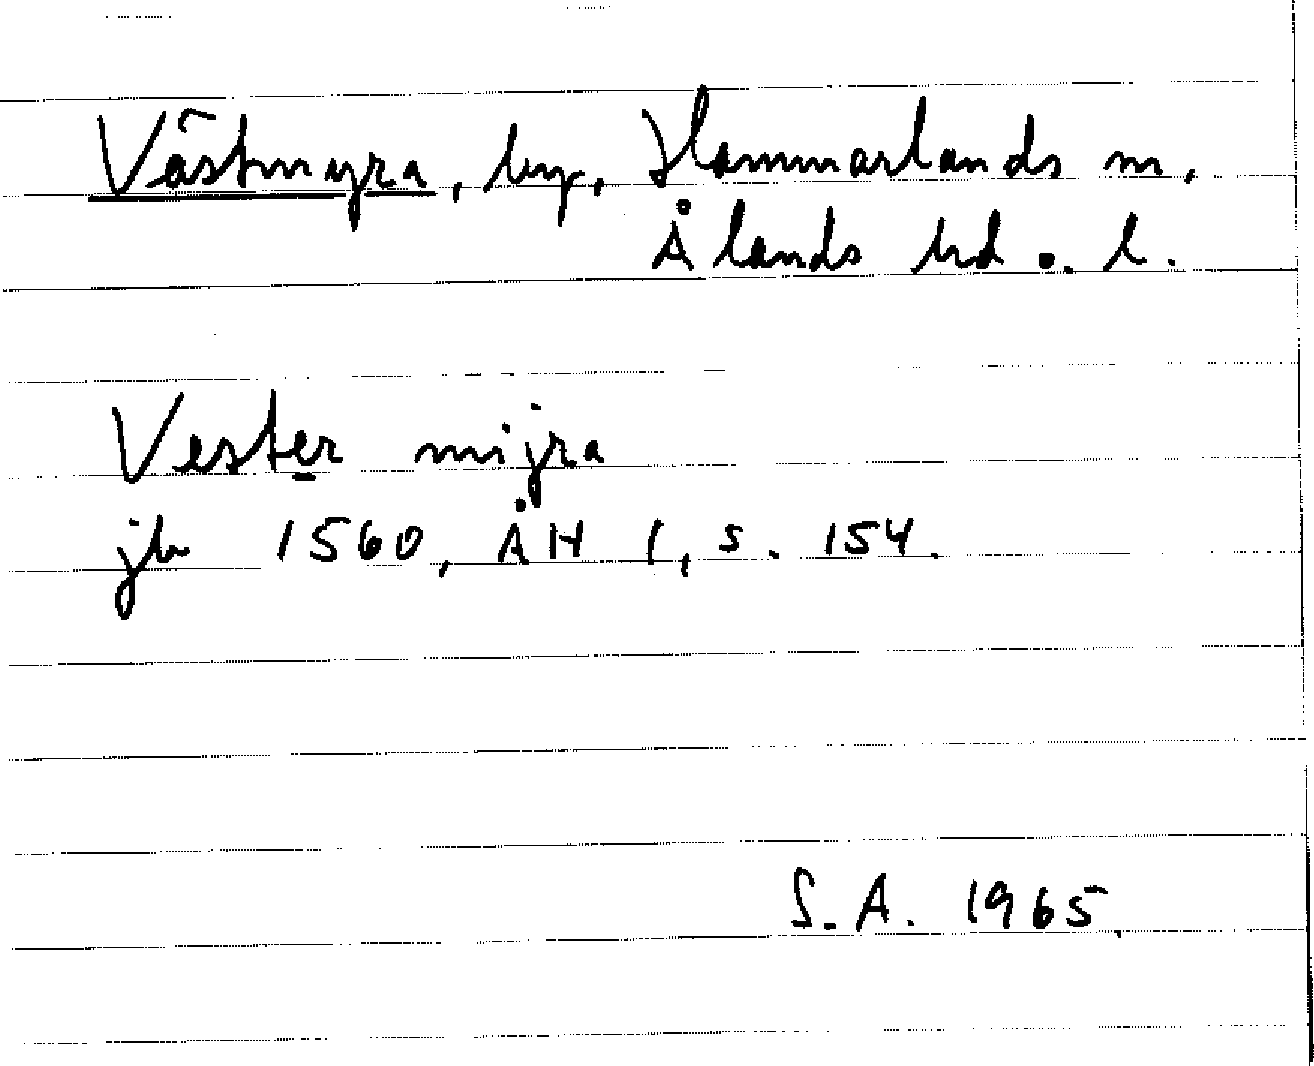 Västmyra, by, Hammarlands sn,
Ålands hd o. l.
Vester mijra
jb 1560, ÅH 1, s. 154.
S. A. 1965.